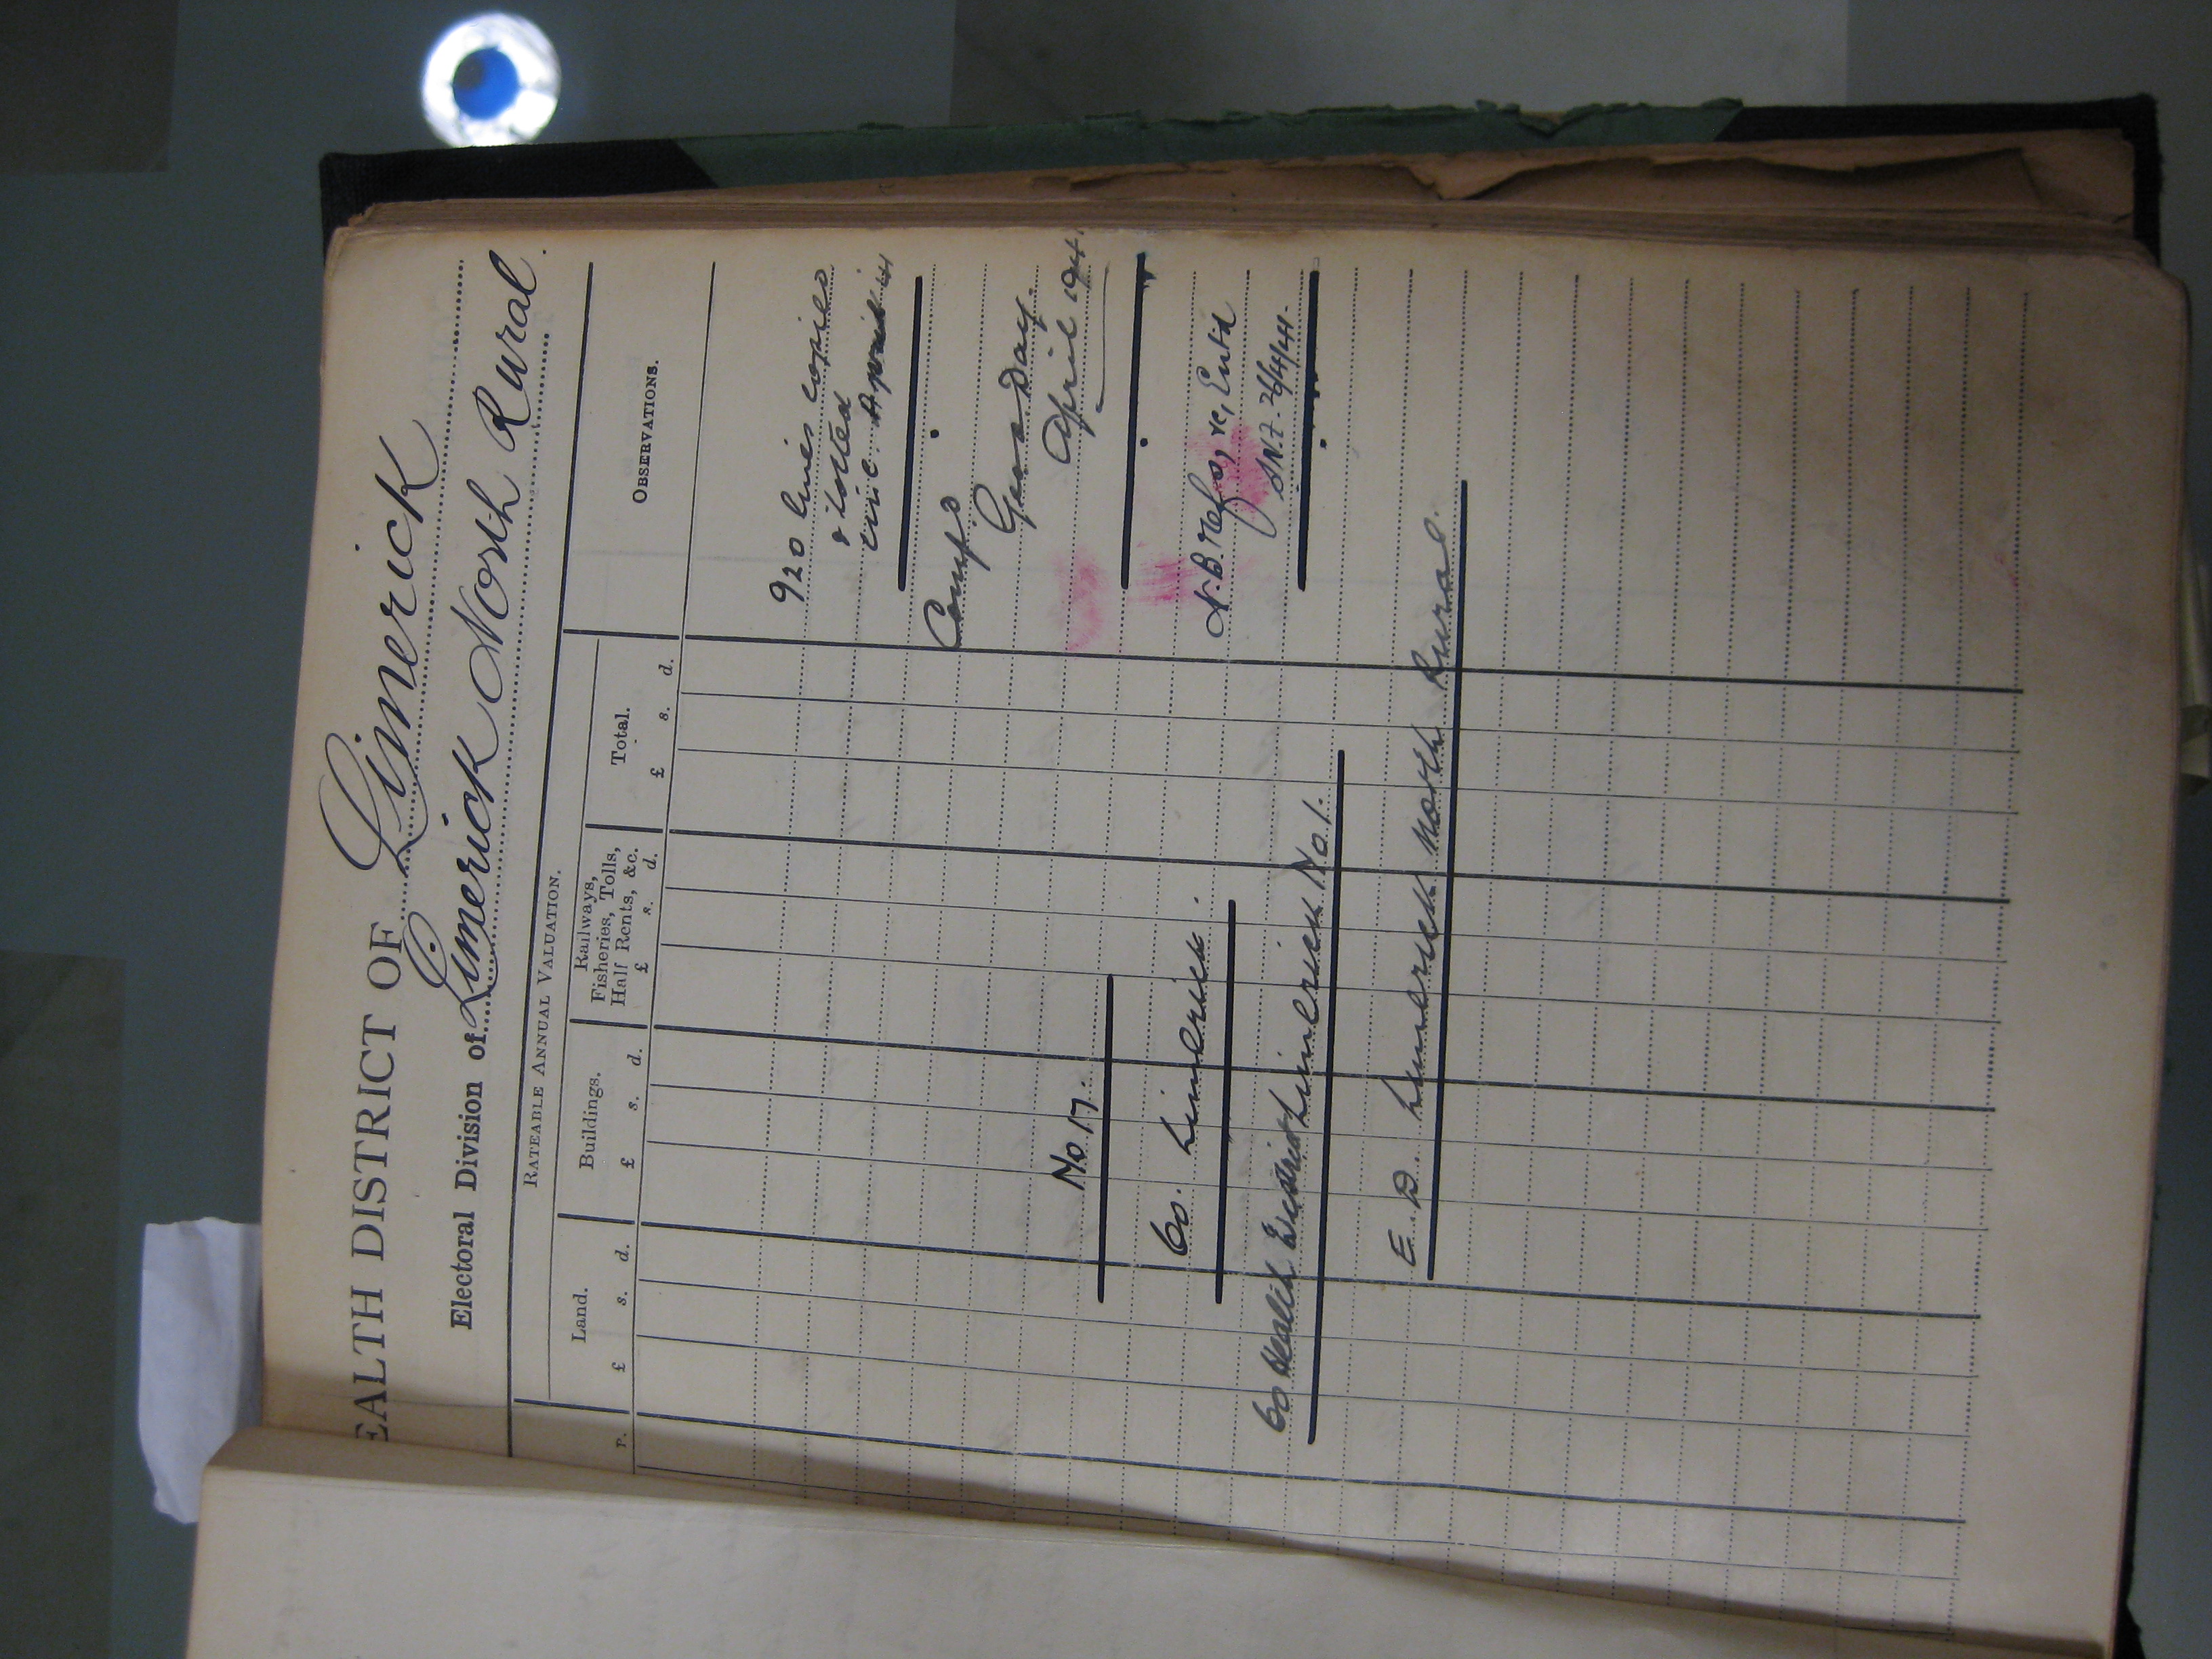 EALTH DISTRICT OF Limerick
Electoral Division of Limerick North Rural.
RATEABLE ANNUAL VALUATION.
OBSERVATIONS.
Land.
Buildings.
Railways,
Fisheries, Tolls,
Half Rents, &c.
Total.
P. £ s. d. £ s. d. £ s. d. £ s. d.
920 lines copies
& listed
April 41
Comp'd
Geo. Day.
April 1941
No. 17.
Co. Limerick.
N.B.
26/4/41.
Co Health District Limerick No. 1.
E. D. Limerick North Rural.